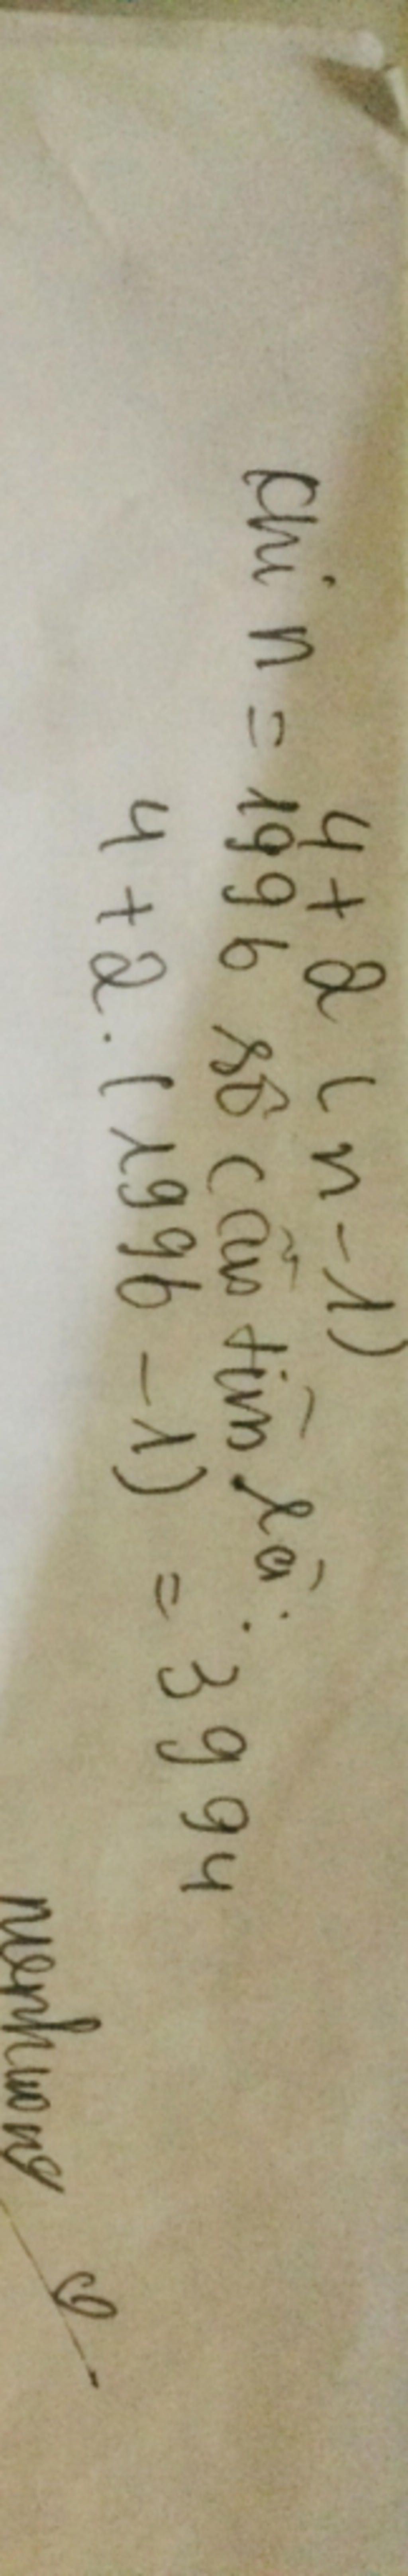 4 + 2 (n - 1)
Khi n = 1996 số cần tìm là:
4 + 2. (1996 - 1) = 3994